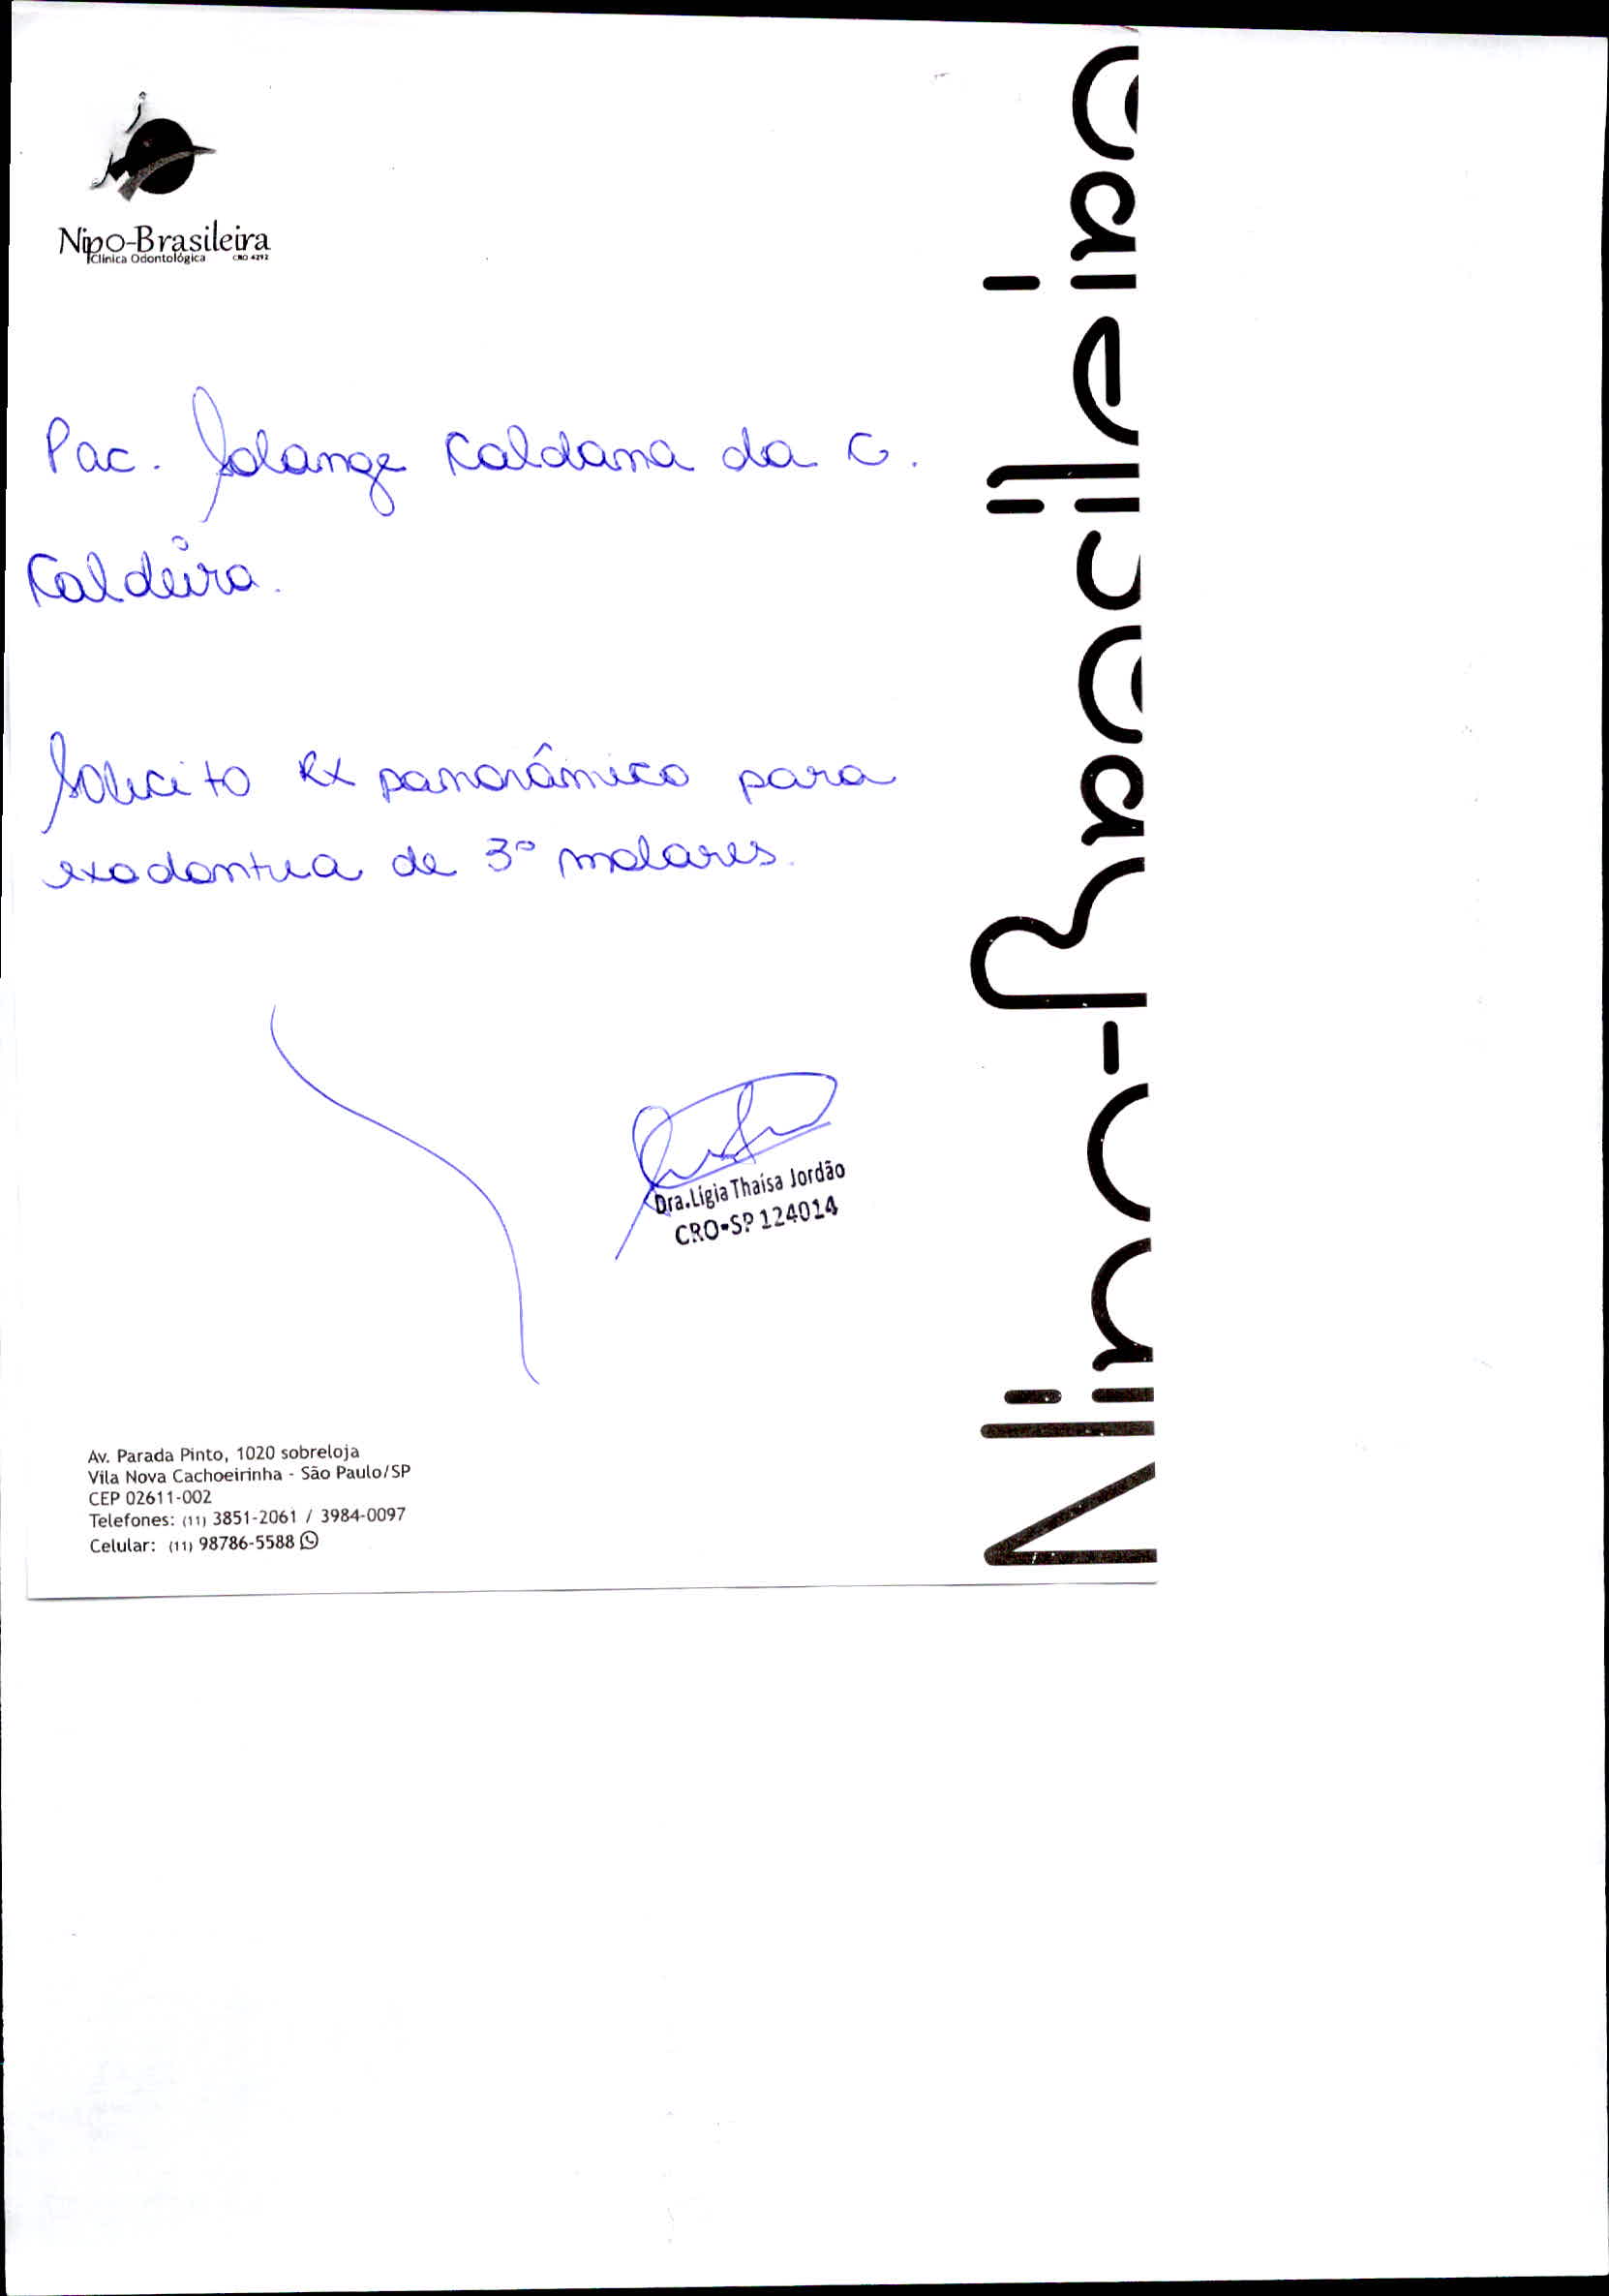 Nipo-Brasileira
Clínica Odontológica CRO 4292
Pac. Solange Caldana da C.
Caldeira.
Solicito RX panorâmico para
exodontia de 3º molares.
Dra. Lígia Thaísa Jordão
CRO-SP 124014
Av. Parada Pinto, 1020 sobreloja
Vila Nova Cachoeirinha - São Paulo/SP
CEP 02611-002
Telefones: (11) 3851-2061 / 3984-0097
Celular: (11) 98786-5588
Nipo-Brasileira